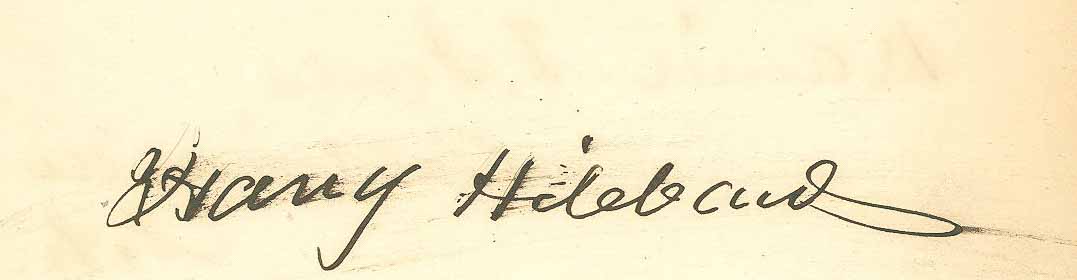 Harry Hilebaud